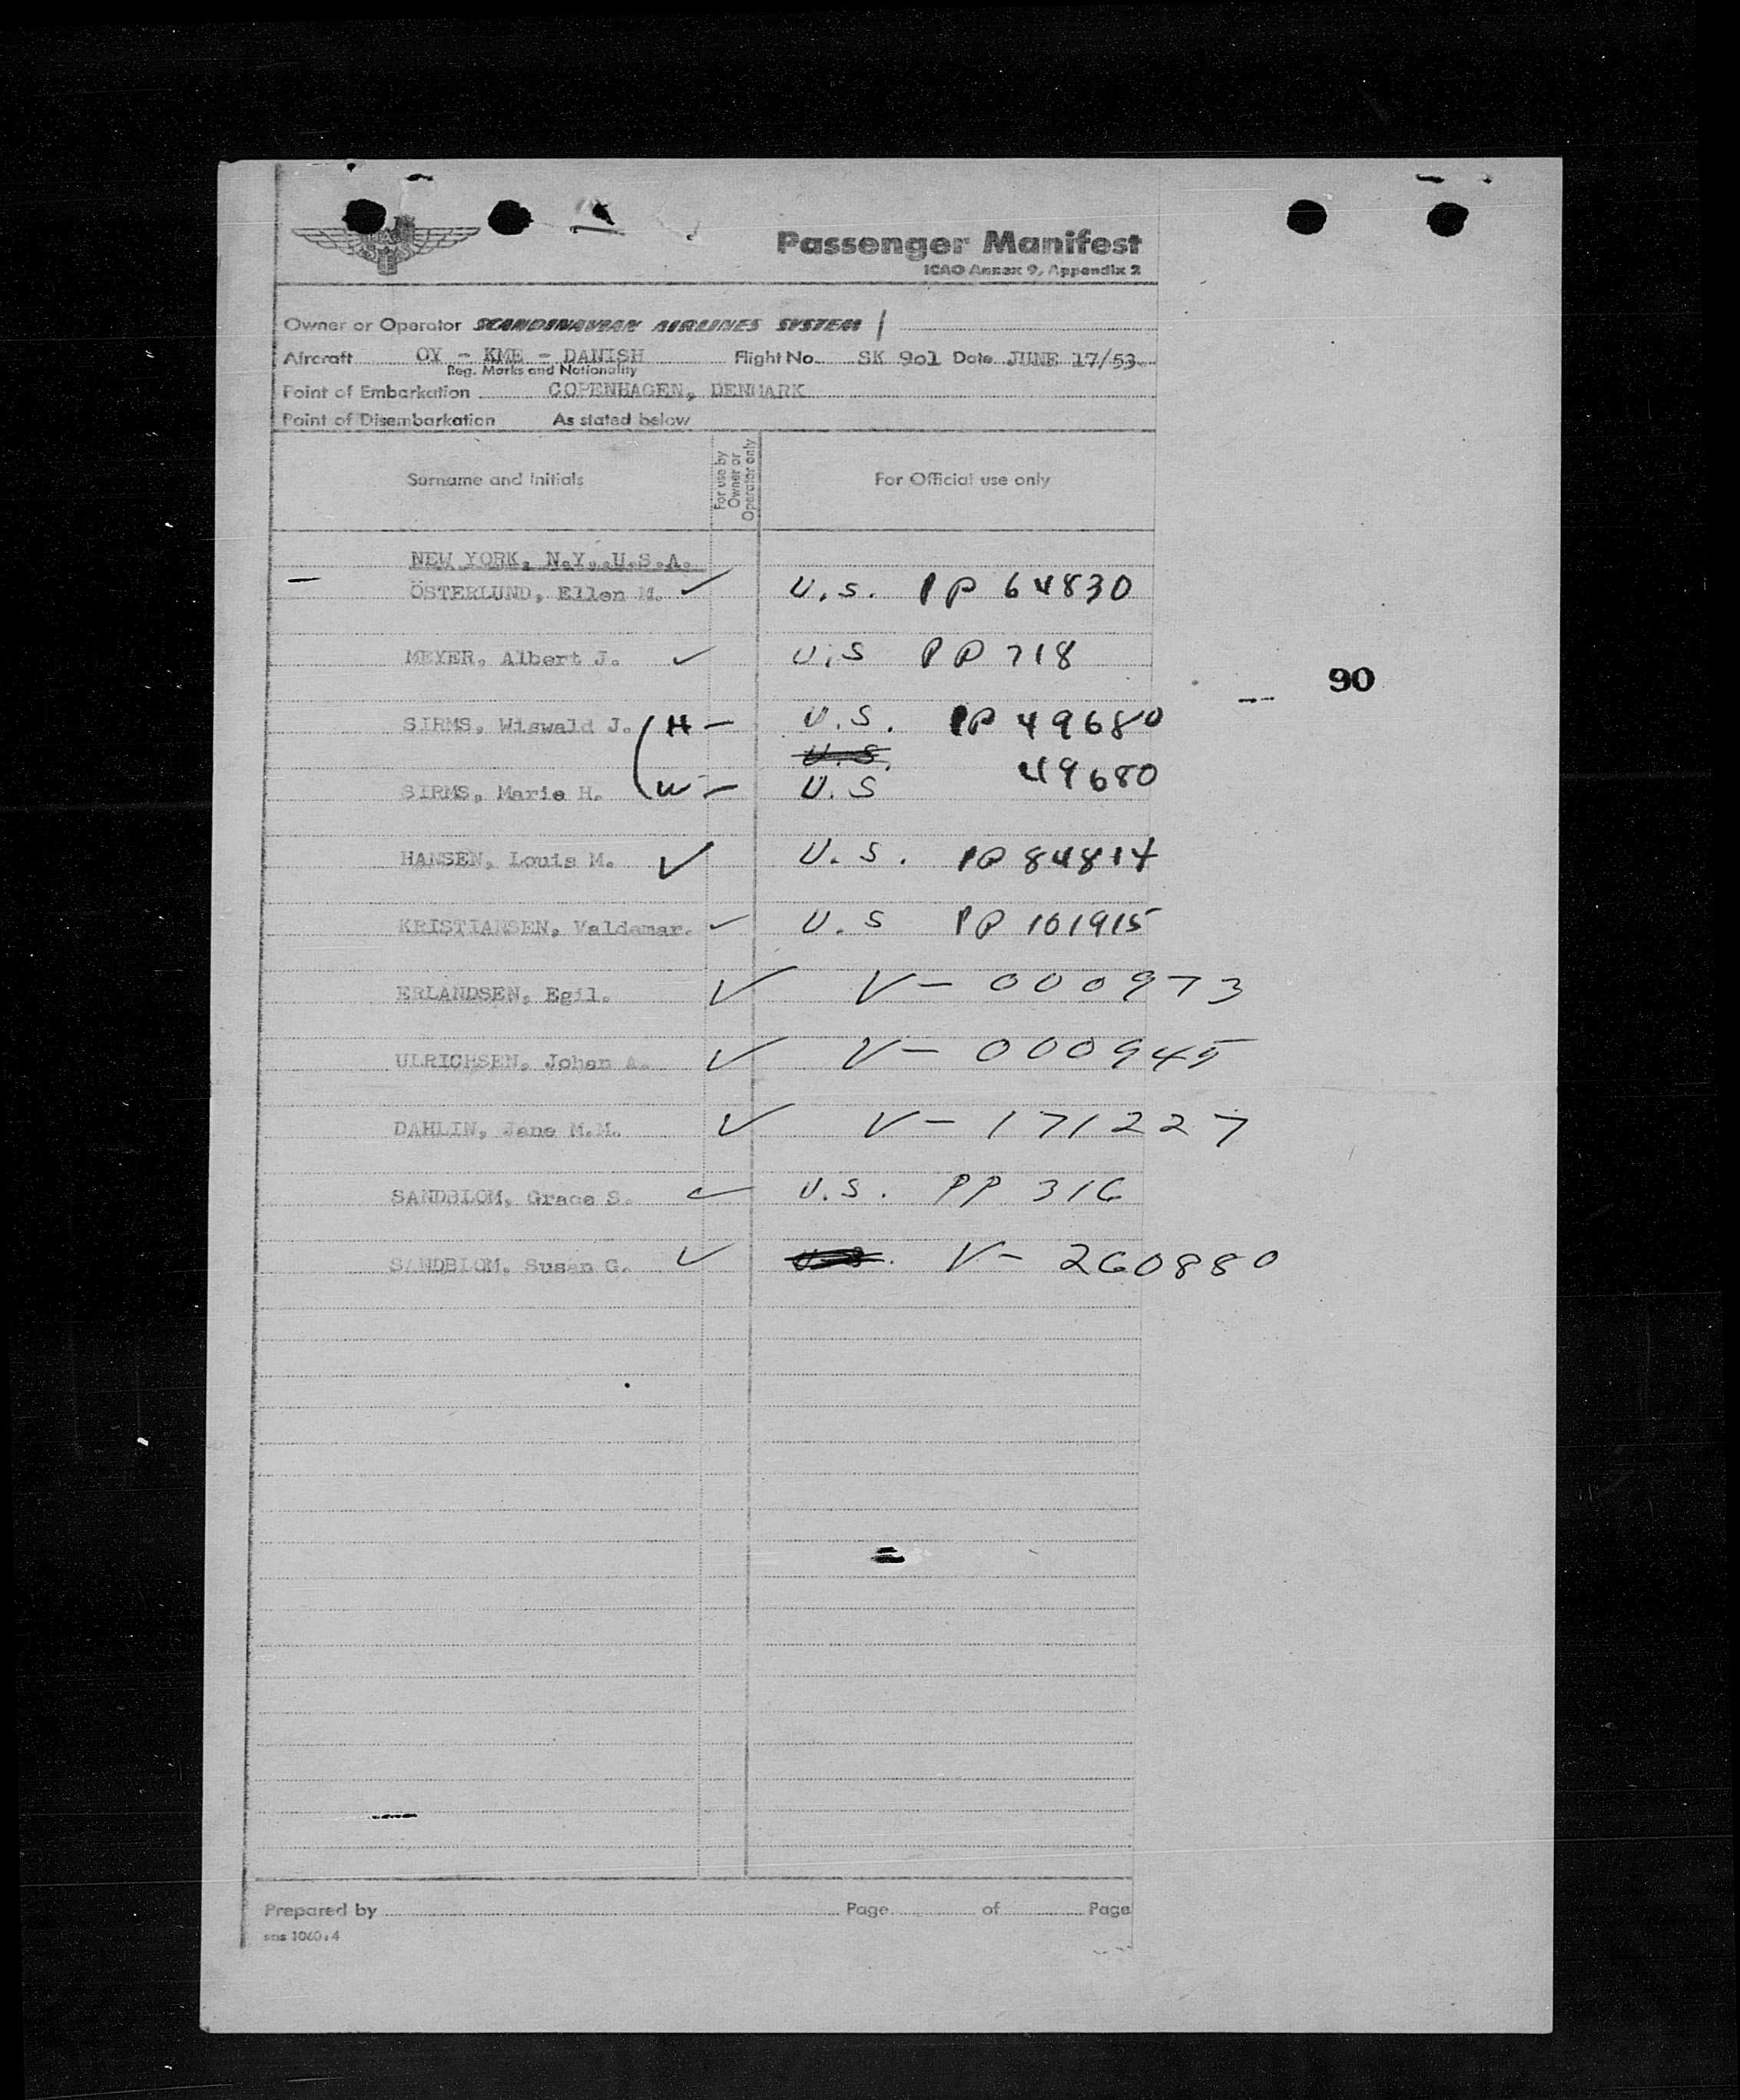 SAS
Passenger Manifest
ICAO Annex 9, Appendix 2
Owner or Operator SCANDINAVIAN AIRLINES SYSTEM /
Aircraft OY - KME - DANISH Flight No. SK 901 Date JUNE 17/53.
Reg. Marks and Nationality
Point of Embarkation COPENHAGEN, DENMARK
Point of Disembarkation As stated below
Surname and Initials For use by Owner or Operator only For Official use only
NEW YORK, N.Y. U.S.A.
— ÖSTERLUND, Ellen M. ✓ U.S. PP 64830
MEYER, Albert J. ✓ U.S PP 718
90
SIRMS, Wiswald J. ( H — U.S. PP 49680
U.S.
SIRMS, Marie H. ( W — U.S 49680
HANSEN, Louis M. ✓ U.S. PP 84814
KRISTIANSEN, Valdemar. ✓ U.S PP 101915
ERLANDSEN, Egil. ✓ V-000973
ULRICHSEN, Johan A. ✓ V-000945
DAHLIN, Jane M.M. ✓ V-171227
SANDBLOM, Grace S. ✓ U.S. PP 316
SANDBLOM, Susan G. ✓ U.S. V-260880
Prepared by Page of Page
sas 1060:4